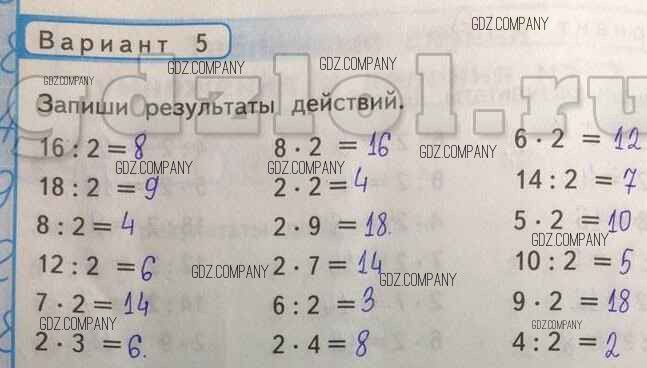 GDZ.COMPANY
Вариант 5
GDZ.COMPANY GDZ.COMPANY
GDZ.COMPANY
gdzlol.ru
Запиши результаты действий.
16 : 2 = 8 8 · 2 = 16 6 · 2 = 12
GDZ.COMPANY GDZ.COMPANY GDZ.COMPANY
18 : 2 = 9 2 · 2 = 4 14 : 2 = 7
8 : 2 = 4 2 · 9 = 18. 5 · 2 = 10
GDZ.COMPANY
12 : 2 = 6 2 · 7 = 14 10 : 2 = 5
GDZ.COMPANY GDZ.COMPANY
7 · 2 = 14 6 : 2 = 3 9 · 2 = 18
GDZ.COMPANY GDZ.COMPANY
2 · 3 = 6. 2 · 4 = 8 4 : 2 = 2